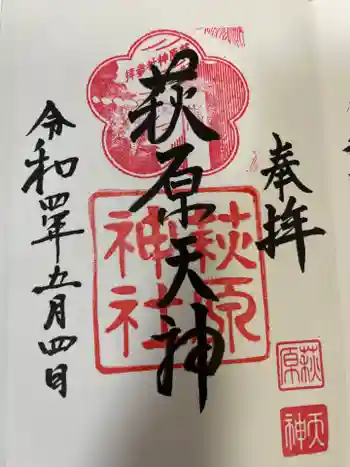 奉拝
萩原天神
令和四年五月四日
萩原
神社
萩
原
天
神